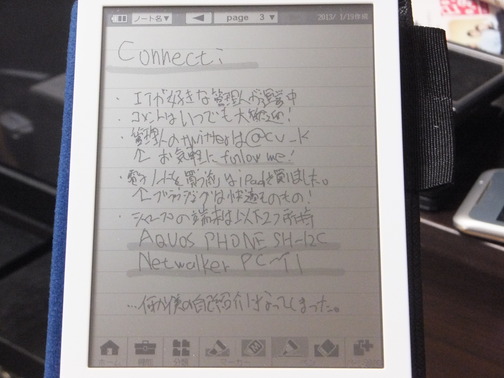 ノート名▼ page 3▼ 2013/1/15作成
Connect:
・ITが好きな管理人が運営中
・コメントはいつでも大歓迎!
・管理人のtwitterは@cv_k
↑お気軽にfollow me!
・電子ノートを買う前はiPadを買いました。
↑ブラウジングは快適そのもの!
・シャープの端末は以下2つ所持
AQUOS PHONE SH-12C
Netwalker PC-T1
…何か僕の自己紹介になってしまった。
ホーム 機能 分類